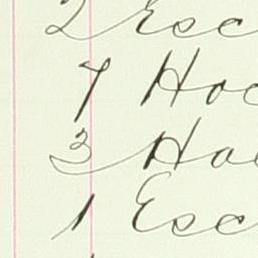 2 Esc
7 Hoc
3 Ha
1 Esc